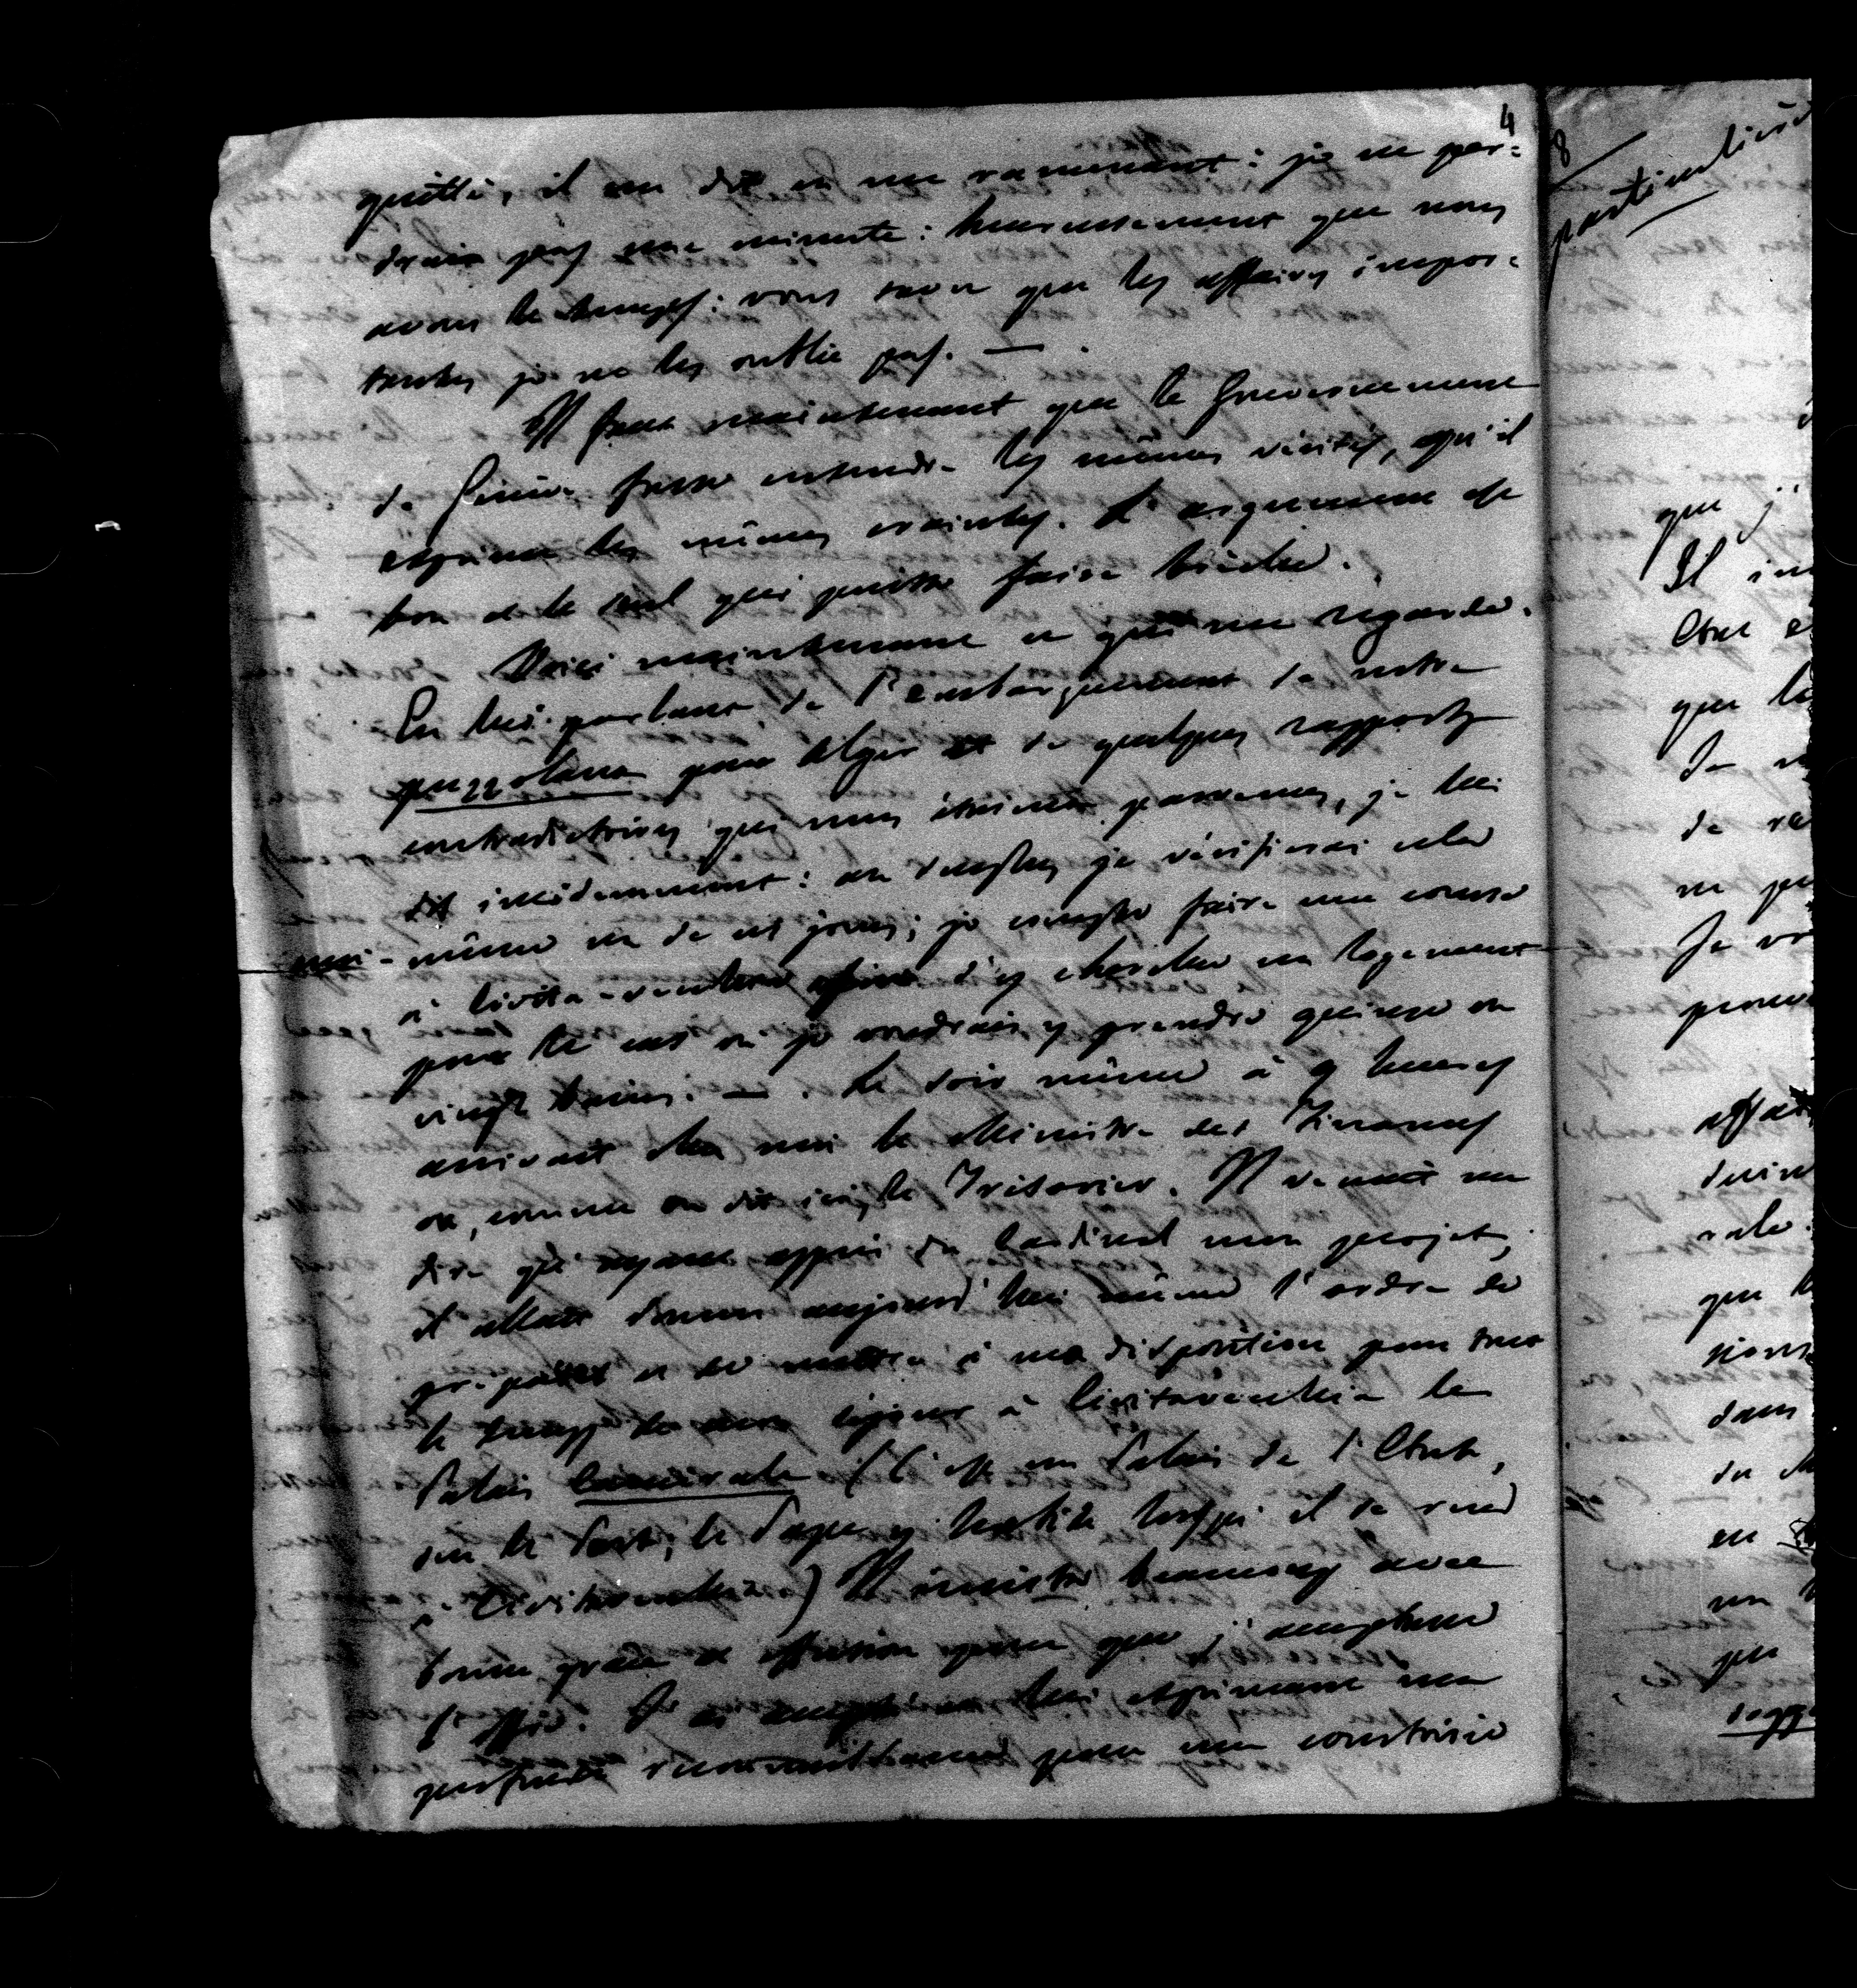 4
quitté, il me dit en me ramenant: je ne per-
drai pas une minute: heureusement que nous
avons le temps: vous savez que les affaires impor-
tantes je ne les oublie pas. —
Il faut maintenant que le Gouvernement
de Genève fasse entendre les mêmes vérités, qu'il
exprime les mêmes craintes. L'argument est
bon et le seul qui puisse faire brèche.
Voici maintenant ce qui me regarde.
En lui parlant de l'embarquement de notre
puzzolana pour Alger et de quelques rapports
contradictoires qui nous étaient parvenus, je lui
dis incidemment: au surplus je vérifierai cela
moi-même un de ces jours; je compte faire une course
à Civita-vecchia afin d'y chercher un logement
pour le cas où je voudrais y prendre quinze ou
vingt bains. — Le soir même à 9 heures
arrivait chez moi le Ministre des Finances
ou, comme on dit ici, le Trésorier. Il venait me
dire qu'ayant appris du Cardinal mon projet,
il allait donner aujourd'hui même l'ordre de
préparer et de mettre à ma disposition pour tout
le temps de mon séjour à Civitavecchia le
Palais Camérale (C'est un Palais de l'Etat,
sur le Port; le Pape y habite lorsqu'il se rend
à Civitavecchia) Il insista beaucoup avec
bonne grâce et effusion pour que j'acceptasse
l'offre. J'ai accepté en lui exprimant ma
profonde reconnaissance pour une courtoisie
8
particulière
que j'
Il
Etat
que le
de
de
ne
Je
que
dans
du
en
un